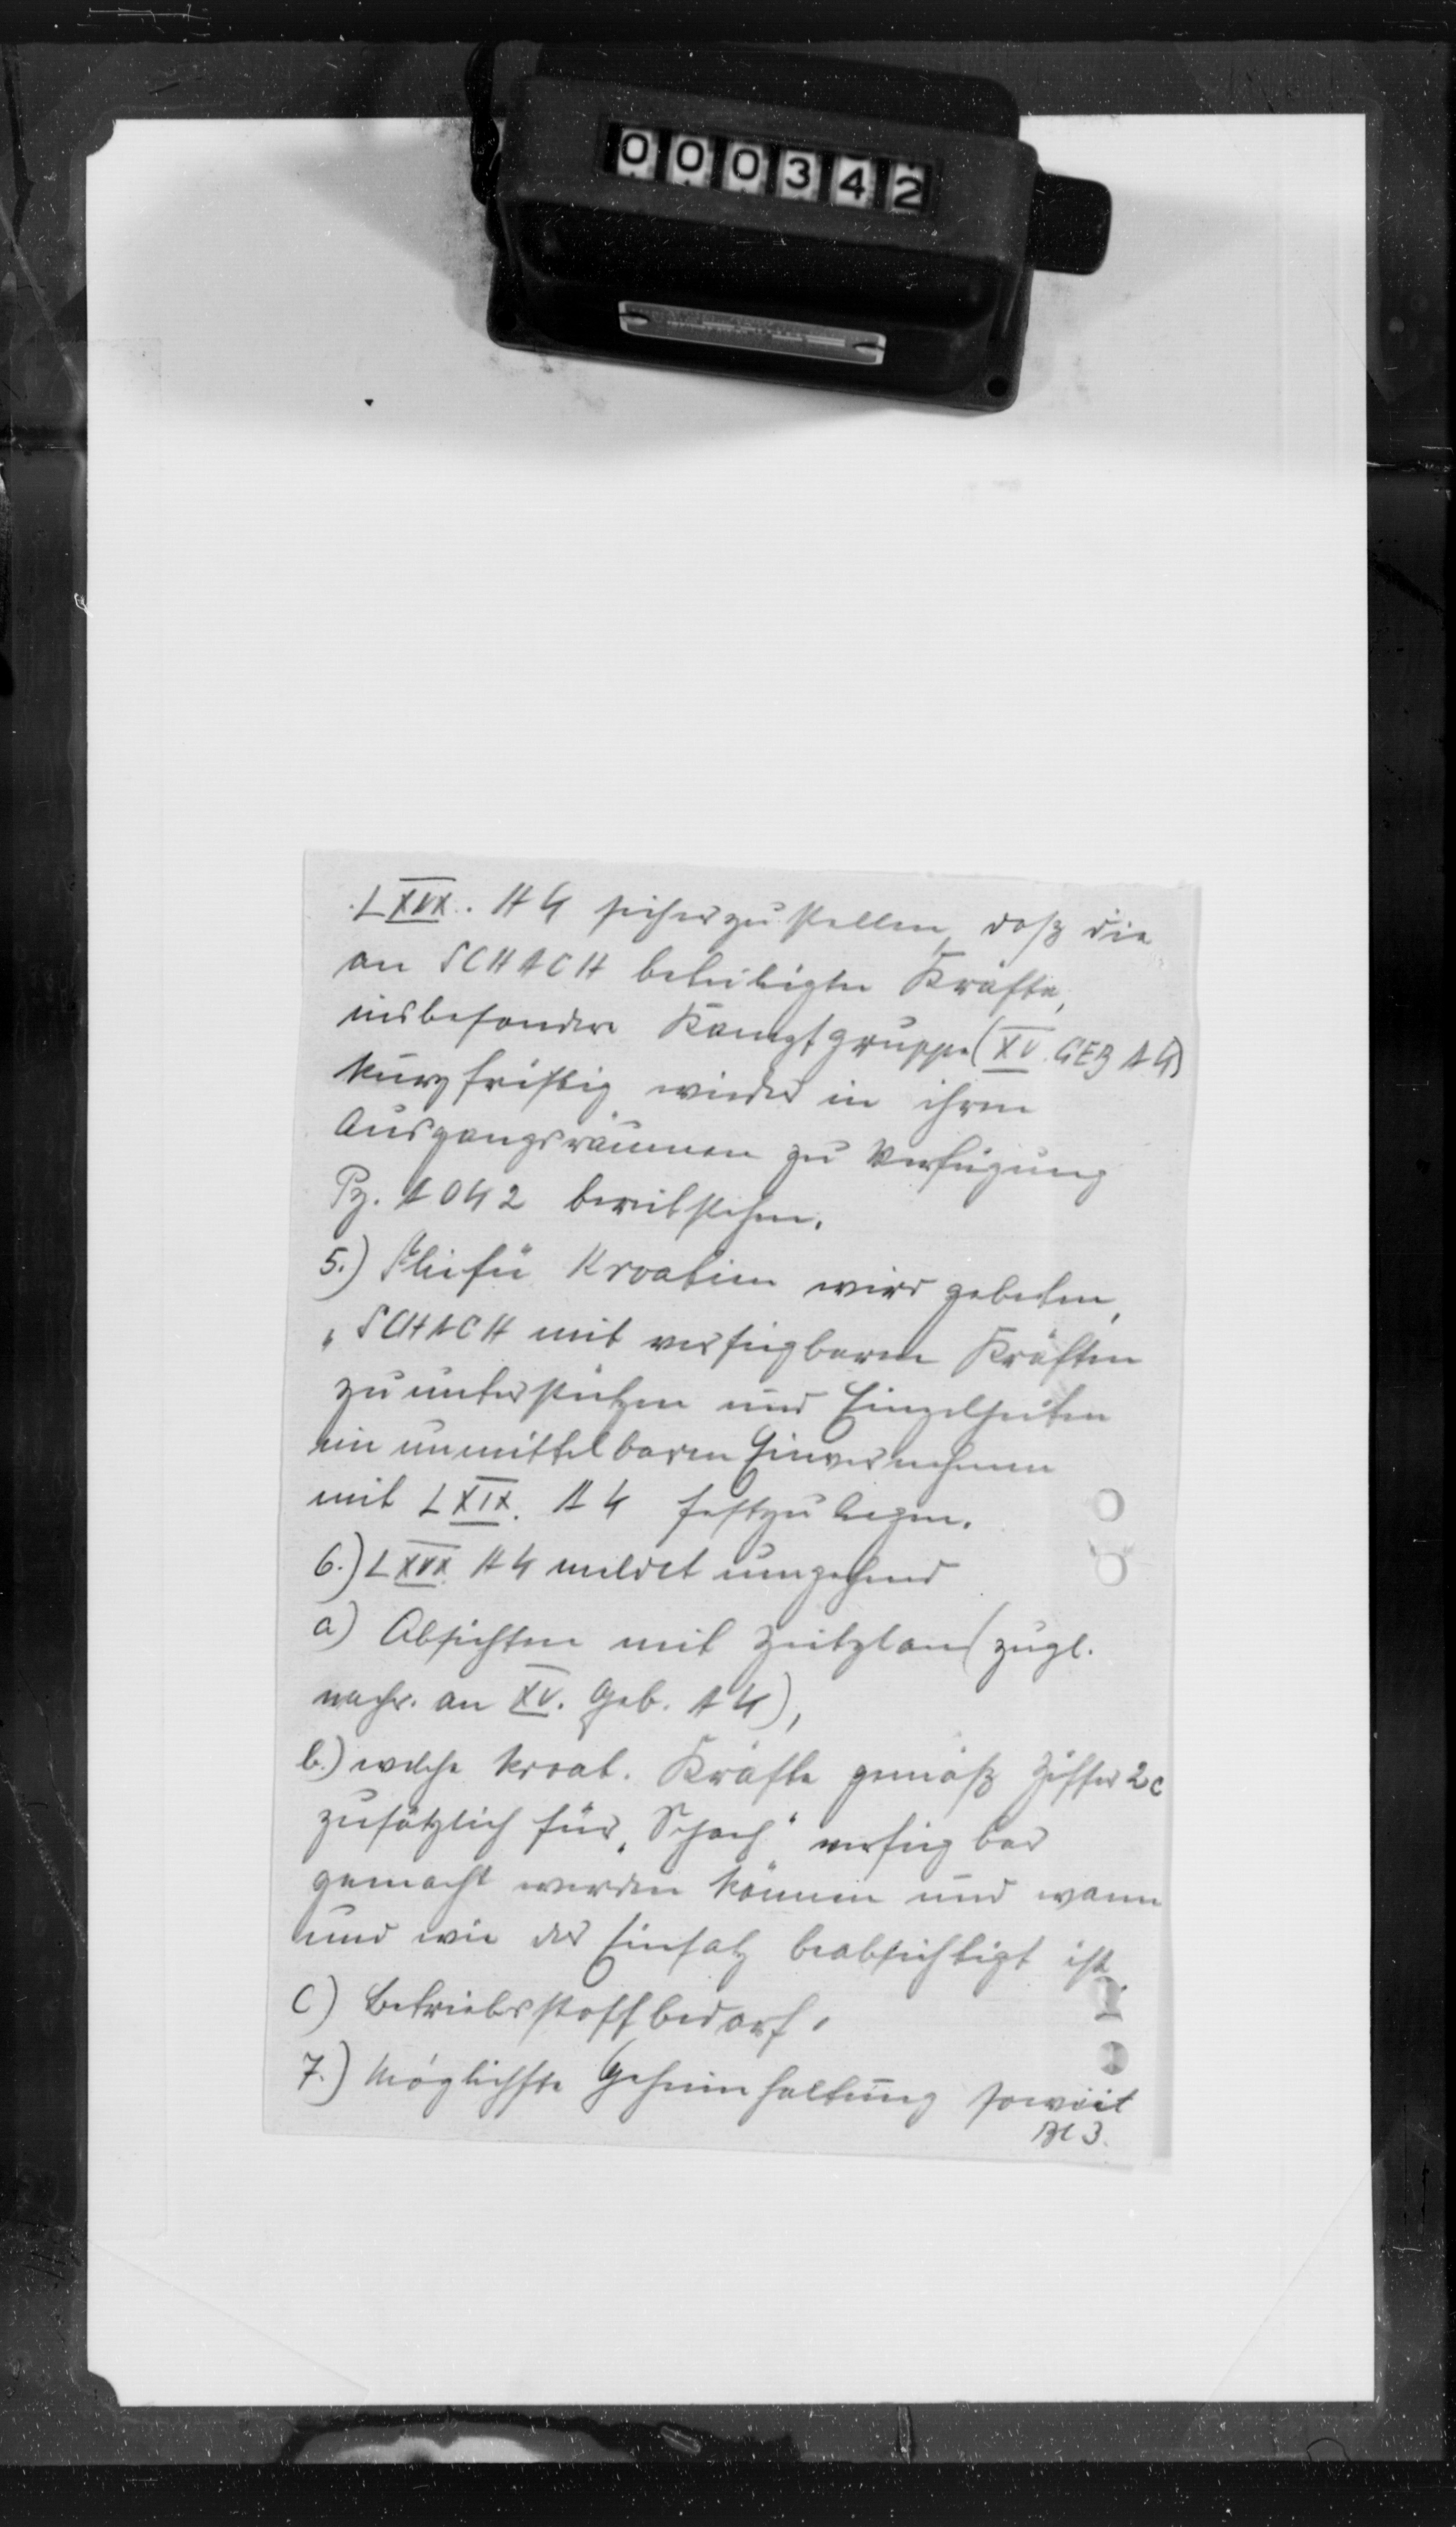 000342
LXIX. AK sicherzustellen, daß die
an SCHACH beteiligten Kräfte,
insbesondere Kampfgruppe (XV. GEB AK)
kurzfristig wieder in ihren
Ausgangsräumen zu Verfügung
Pz. AOK 2 bereitstehen.
5.) Flifü Kroatien wird gebeten,
"SCHACH mit verfügbaren Kräften
zu unterstützen und Einzelheiten
im unmittelbaren Einvernehmen
mit LXIX. AK festzulegen.
6.) LXIX AK meldet umgehend
a) Absichten mit Zeitplan (zugl.
nachr. an XV. Geb. AK),
b.) welche kroat. Kräfte gemäß Ziffer 2c
zusätzlich für „Schach" verfügbar
gemacht werden können und wann
und wie der Einsatz beabsichtigt ist
C) Betriebsstoffbedarf.
7.) Möglichste Geheimhaltung soweit
Bl 3.